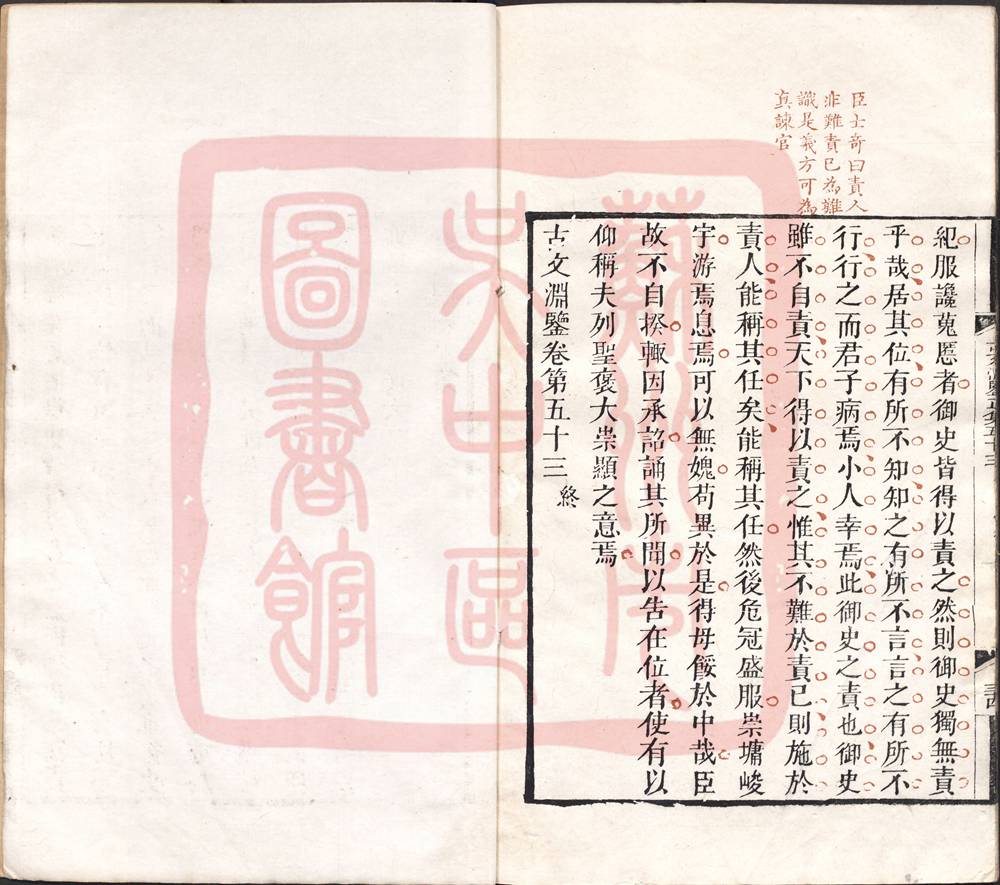 臣士奇曰責人
非難責己為難
識是義方可為
真諫官
紀服讒蒐慝者御史皆得以責之然則御史獨無責
乎哉居其位有所不知知之有所不言言之有所不
行行之而君子病焉小人幸焉此御史之責也御史
雖不自責天下得以責之惟其不難於責已則施於
責人能稱其任矣能稱其任然後危冠盛服崇墉峻
宇游焉息焉可以無媿苟異於是得毋餒於中哉臣
故不自揆輒因承詔誦其所聞以告在位者使有以
仰稱夫列聖褒大崇顯之意焉
古文淵鑒卷第五十三 終
蘇州市
吳中區
圖書館